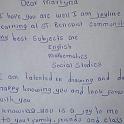 Dear Martyna
I hope you are well I am Jovline
learning at St. Removal Communi
my best subjects are
English
mathematics
Social Studies
I am talented in drawing and d
happy knowing you and look forw
with you
Knowing you is a joy to me
to your family, friends and class